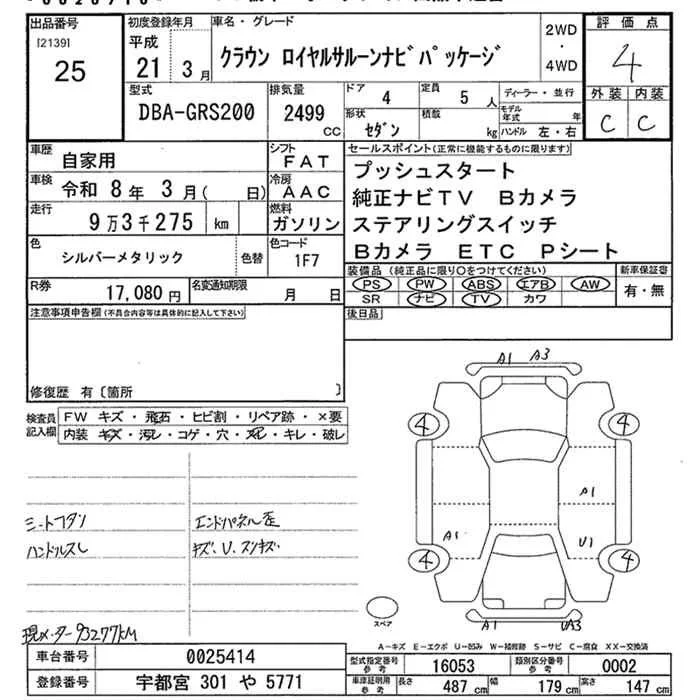 出品番号
[2139]
25
初度登録年月
平成
21 年 3 月
車名・グレード
クラウン ロイヤルサルーンナビパッケージ
2WD
・
4WD
評価点
4
外装 内装
C C
型式
DBA-GRS200
排気量
2499 CC
ドア 4
定員 5 人
ディーラー・並行
形状 セダン
積数 kg
モデル年式 年
ハンドル 左・右
車歴 自家用
シフト FAT
車検 令和 8年 3月( 日)
冷房 AAC
走行 9万3千275 km
燃料 ガソリン
色 シルバーメタリック
色替
色コード 1F7
R券 17,080 円
名変通知期限 月 日
セールスポイント(正常に機能するものに限ります)
プッシュスタート
純正ナビTV Bカメラ
ステアリングスイッチ
Bカメラ ETC Pシート
装備品(純正品に限り〇をつけてください)
PS PW ABS エアB AW
SR ナビ TV カワ
新車保証書
有・無
後日品
注意事項申告欄(不具合内容等は具体的に記入して下さい)
修復歴 有〔箇所 〕
検査員記入欄
FW キズ・飛石・ヒビ割・リペア跡・×要
内装・キズ・汚レ・コゲ・穴・スレ・キレ・破レ
シートコゲ
ハンドルスレ
エンドパネル歪
キズ、U、スリキズ
現メーター93277KM
A1 A3
4 4
A1
A1 U1
4 4
A1 UA3
スペア
A-キズ E-エクボ U-凹み W-補修跡 S-サビ C-腐食 XX-交換済
車台番号 0025414
登録番号 宇都宮 301 や 5771
型式指定番号 参考 16053
類別区分番号 参考 0002
車庫証明用 参考
長さ 487 cm
幅 179 cm
高さ 147 cm